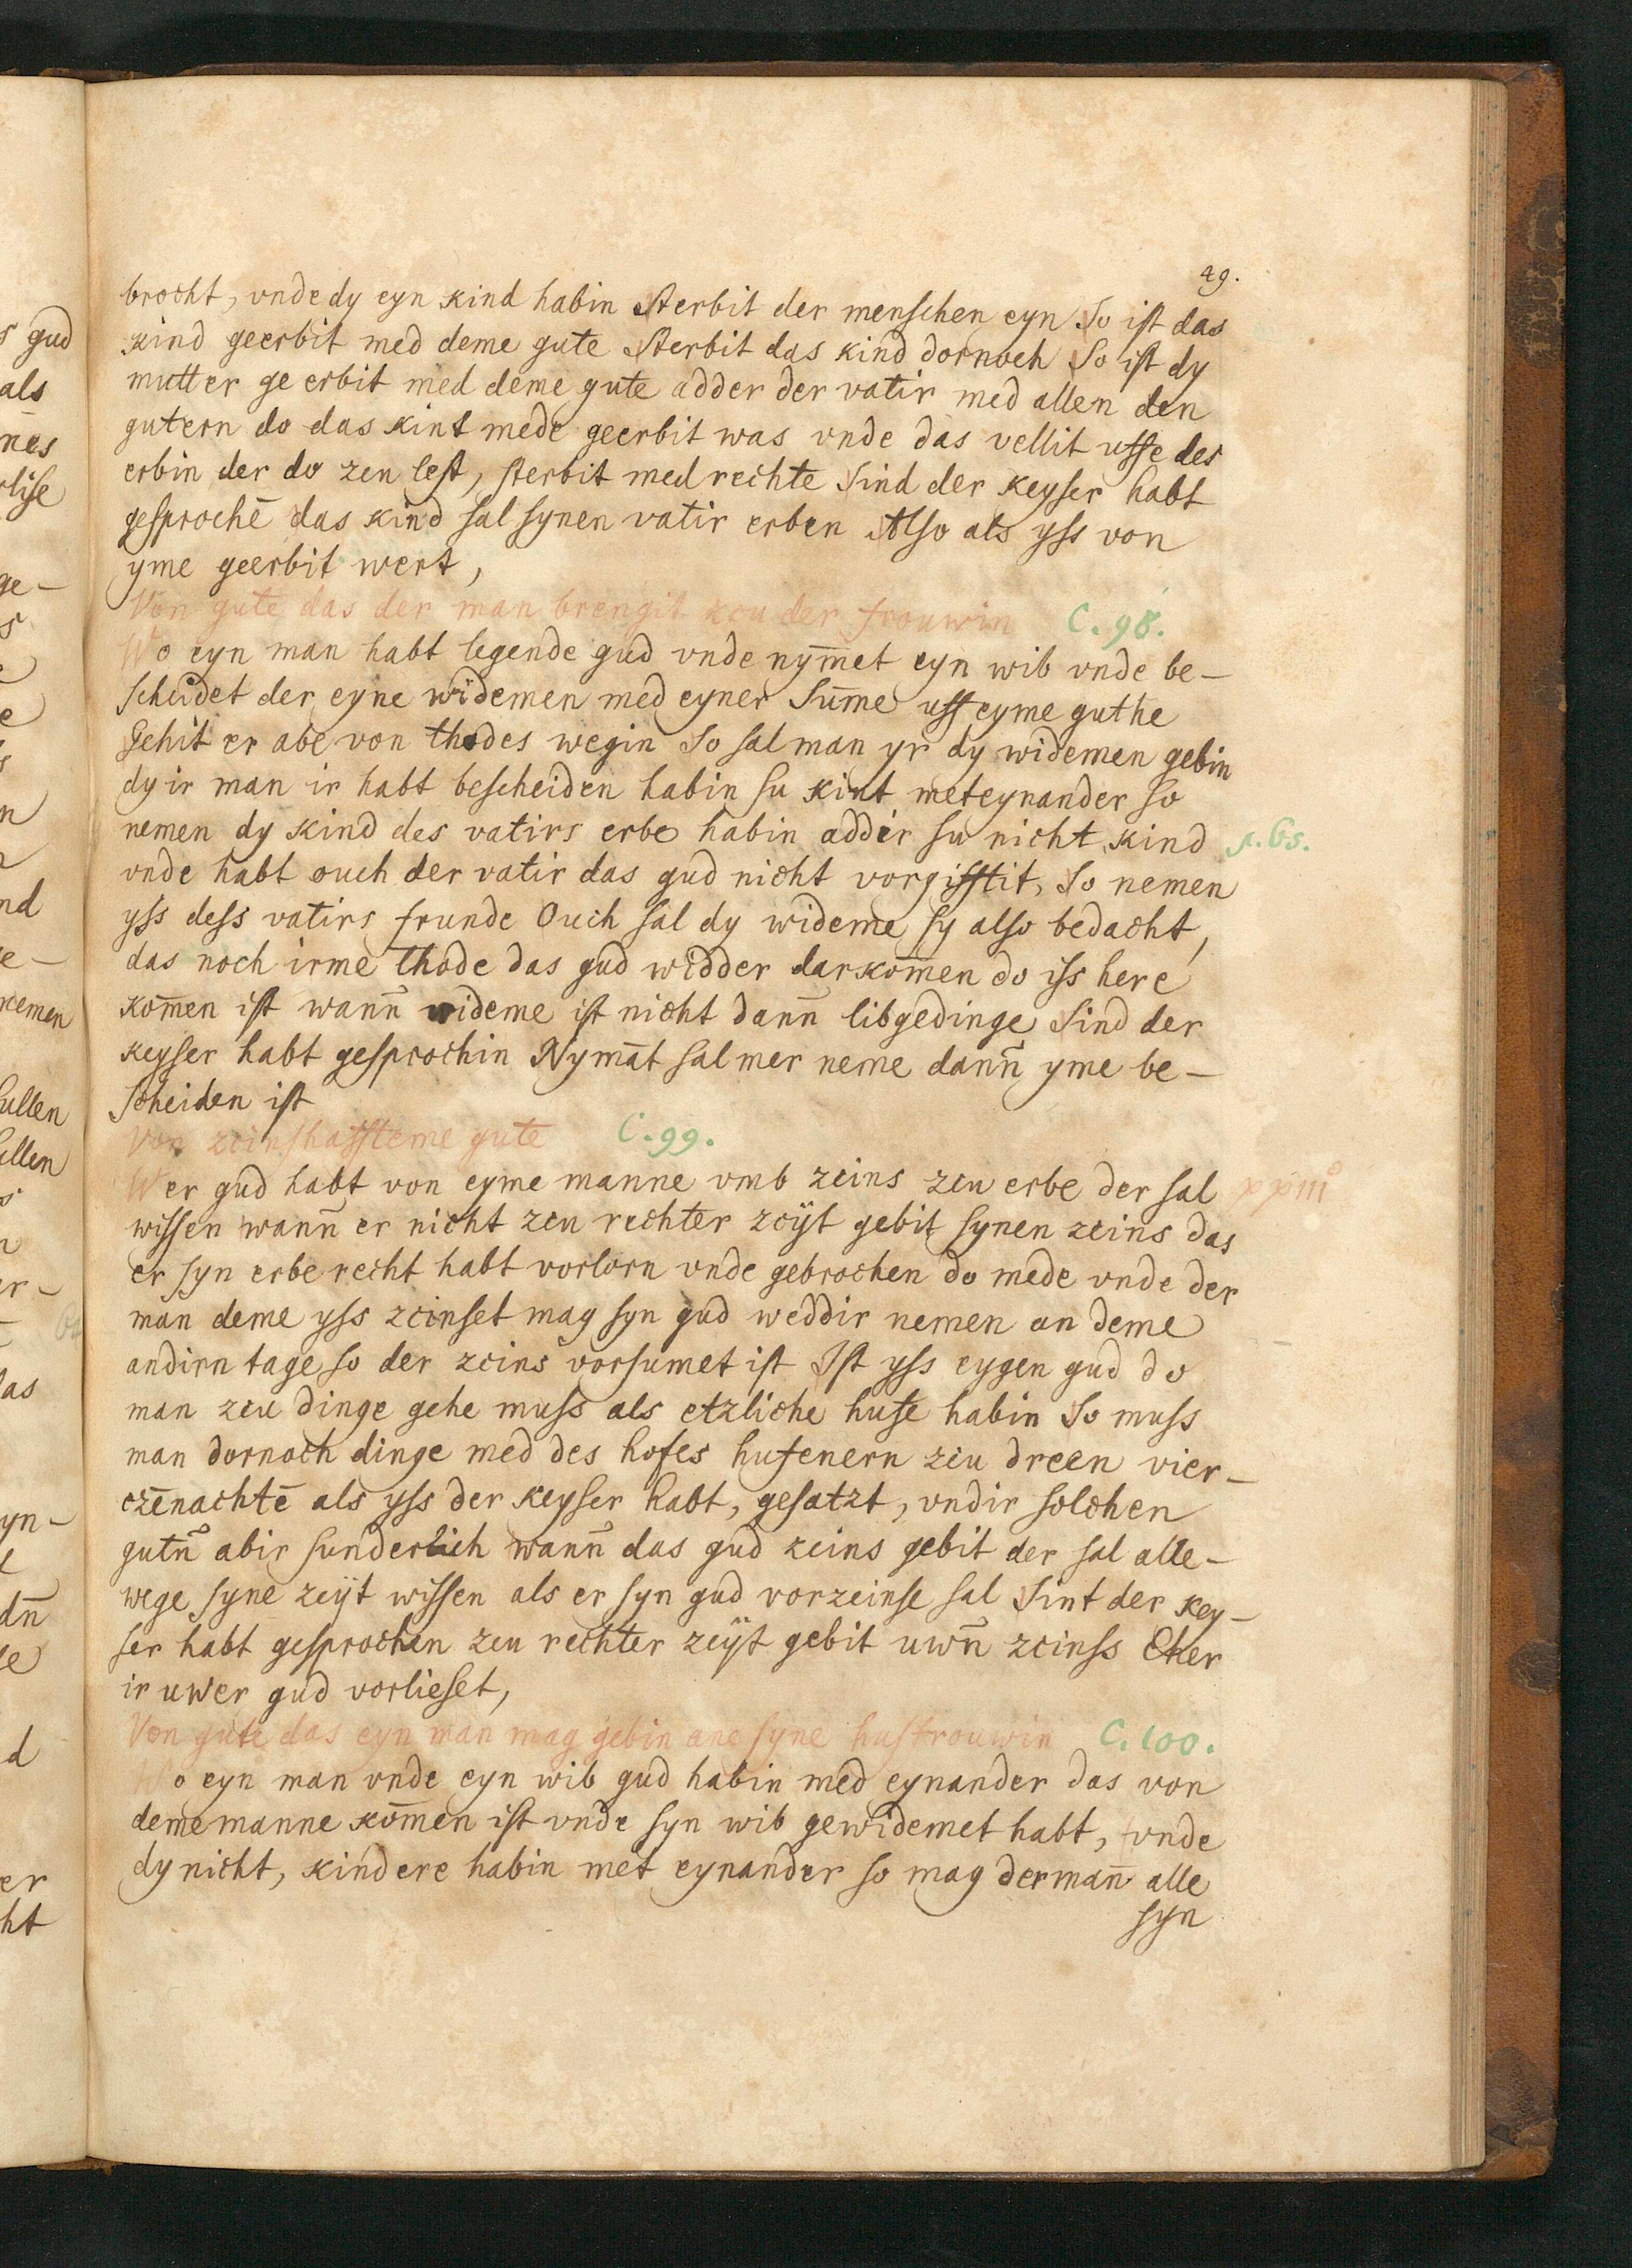 49.
brocht, vnde dy eyn kind habin Sterbit der menschen eyn So ist das
kind geerbit med deme gute Sterbit das kind dornoch So ist dy
mutter ge erbit med deme gute adder der vatir med allen den
gutern do das kint mede geerbit was vnde das vellit uffe des
erbin der do zcu lest, sterbit med rechte Sind der Keyser habt
gesprochē das kind sal synen vatir erben Also als yss von
yme geerbit wert,
Von gute das der man brengit kcu der frouwin C. 98.
Wo eyn man habt legende gud vnde nym̄et eyn wib vnde be-
scheidet der eyne widemen med eyner Sum̄e uff eyme guthe
Gehit er abe von thodes wegin So sal man yr dy widemen gebin
dy ir man ir habt bescheiden habin su kint met eynander so
nemen dy kind des vatirs erbe habin addir su nicht kind
vnde habt ouch der vatir das gud nicht vorgifftit, So nemen
yss dess vatirs frunde Ouch sal dy wideme sy also bedacht,
das noch irme thode das gud widder dar kom̄en do iss here
kom̄en ist wann̄ wideme ist nicht dann̄ libgedinge Sind der
keyser habt gesprochin Nymāt sal mer neme dann̄ yme be-
scheiden ist
Von zcinshaffteme gute C. 99.
Wer gud habt von eyme manne vmb zcins zcu erbe der sal
wissen wann̄ er nicht zcu rechter zcÿt gebit synen zcins das
er syn erbe recht habt vorlorn vnde gebrochen do mede vnde der
man deme yss zcinset mag syn gud weddir nemen an deme
andirn tage so der zcins vorsumet ist Ist yss eygen gud do
man zcu dinge gehe muss als etzliche hufe habin So muss
man dornoch dinge med des hofes hufenern zcu dreen vier-
czēnachtē als yss der Keyser habt, gesatzt, vndir solchen
gutn̄ abir sunderlich wann̄ das gud zcins gebit der sal alle-
wege syne zcÿt wissen als er syn gud vorzcinse sal Sint der key-
ser habt gesprochen zcu rechter zcÿt gebit uwn̄ zcinss Eher
ir uwer gud vorlieset,
Von gute das eyn man mag gebin ane syne husfrouwin C. 100.
Wo eyn man vnde eyn wib gud habin med eynander das von
deme manne kom̄en ist vnde syn wib gewidemet habt, vnde
dy nicht, kindere habin met eynander so mag der man̄ alle
syn